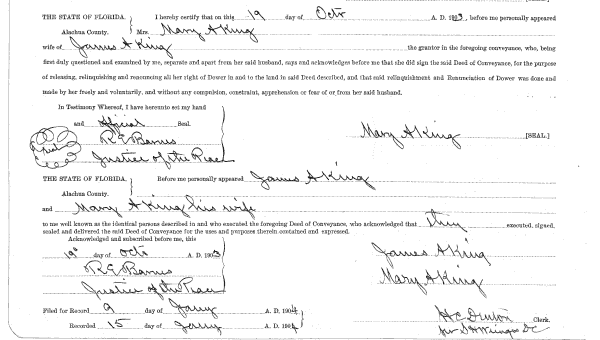 THE STATE OF FLORIDA. I hereby certify that on this 19 day of Octr A. D. 1903, before me personally appeared
Alachua County. Mrs. Mary A King
wife of James A King the grantor in the foregoing conveyance, who, being
first duly questioned and examined by me, separate and apart from her said husband, says and acknowledges before me that she did sign the said Deed of Conveyance, for the purpose
of releasing, relinquishing and renouncing all her right of Dower in and to the land in said Deed described, and that said relinquishment and Renunciation of Dower was done and
made by her freely and voluntarily, and without any compulsion, constraint, apprehension or fear of or from her said husband.
In Testimony Whereof, I have hereunto set my hand
and official Seal.
R. E. Barnes Mary A King [SEAL.]
Justice of the Peace
THE STATE OF FLORIDA. Before me personally appeared James A King
Alachua County.
and Mary A King his wife
to me well known as the identical persons described in and who executed the foregoing Deed of Conveyance, who acknowledged that they executed, signed,
sealed and delivered the said Deed of Conveyance for the uses and purposes therein contained and expressed.
Acknowledged and subscribed before me, this
19" day of Octr A. D. 1903 James A King
R. E. Barnes Mary A King
Justice of the Peace
Filed for Record 9 day of Jany A. D. 1904
H C Denton Clerk.
Recorded 15 day of Jany A. D. 1904
per D C